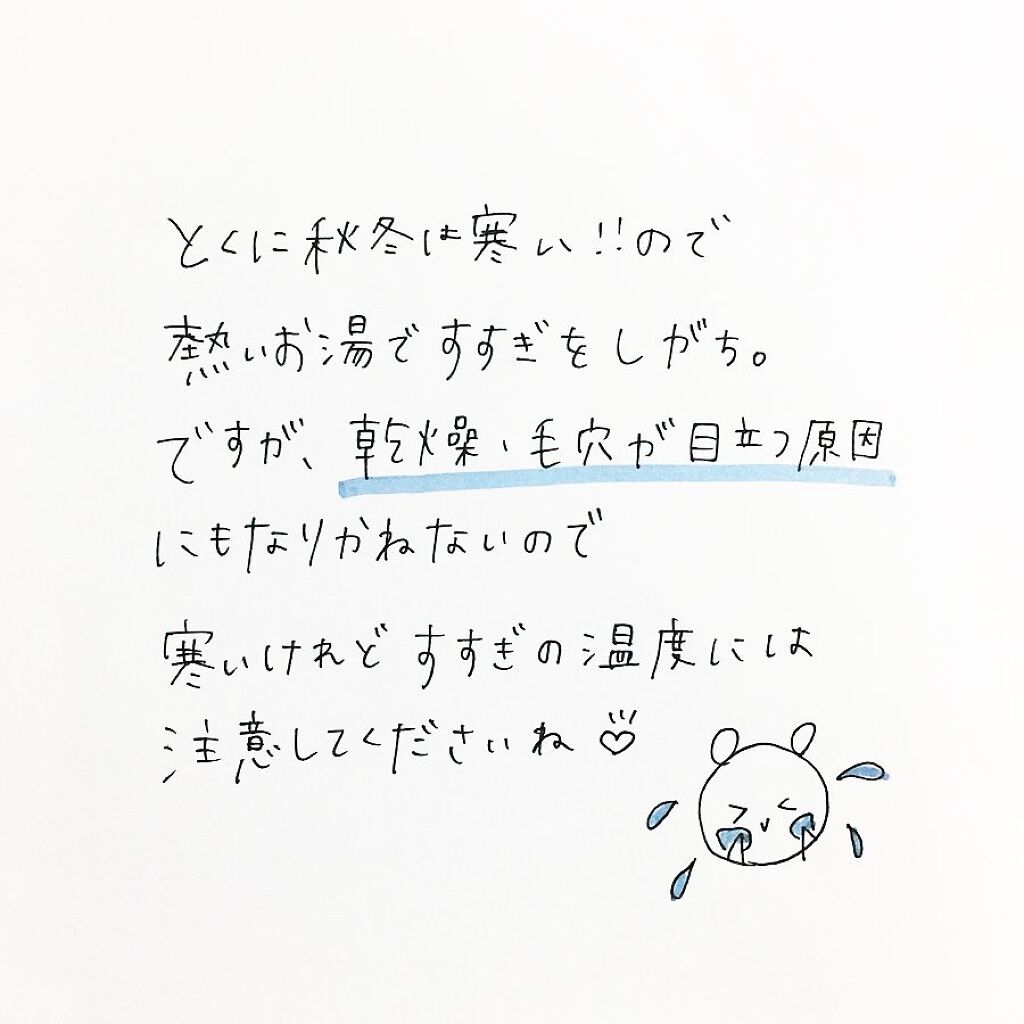 とくに秋冬は寒い!!ので
熱いお湯ですすぎをしがち。
ですが、乾燥・毛穴が目立つ原因
にもなりかねないので
寒いけれどすすぎの温度には
注意してくださいね♡